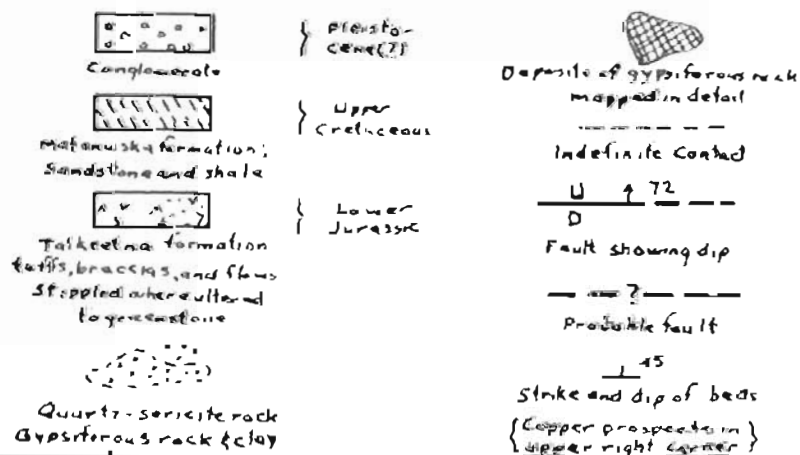 Conglomerate
} Pleisto-
cene(?)
Matanuska formation;
Sandstone and shale
} Upper
Cretaceous
Talkeetna formation
tuffs, breccias, and flows
Stippled where altered
to greenstone
{ Lower
Jurassic
Quartz-sericite rock
Gypsiferous rock & clay
Deposits of gypsiferous rock
mapped in detail
Indefinite Contact
U 72
D
Fault showing dip
?
Probable fault
45
Strike and dip of beds
{Copper prospects in
upper right corner}